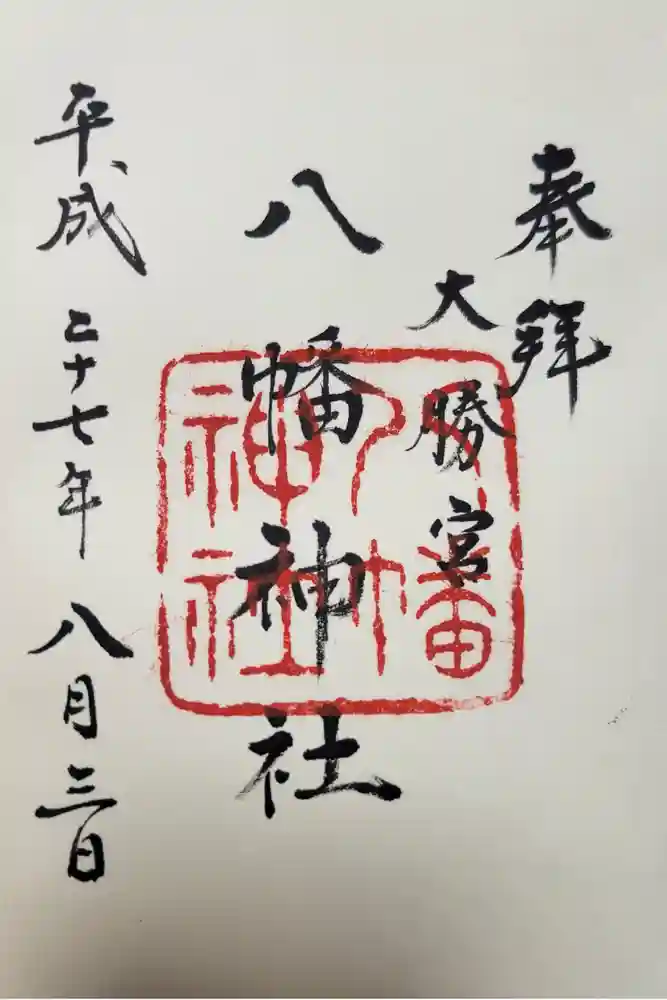 奉拝
大勝宮
八幡神社
平成二十七年八月三日
八幡神社